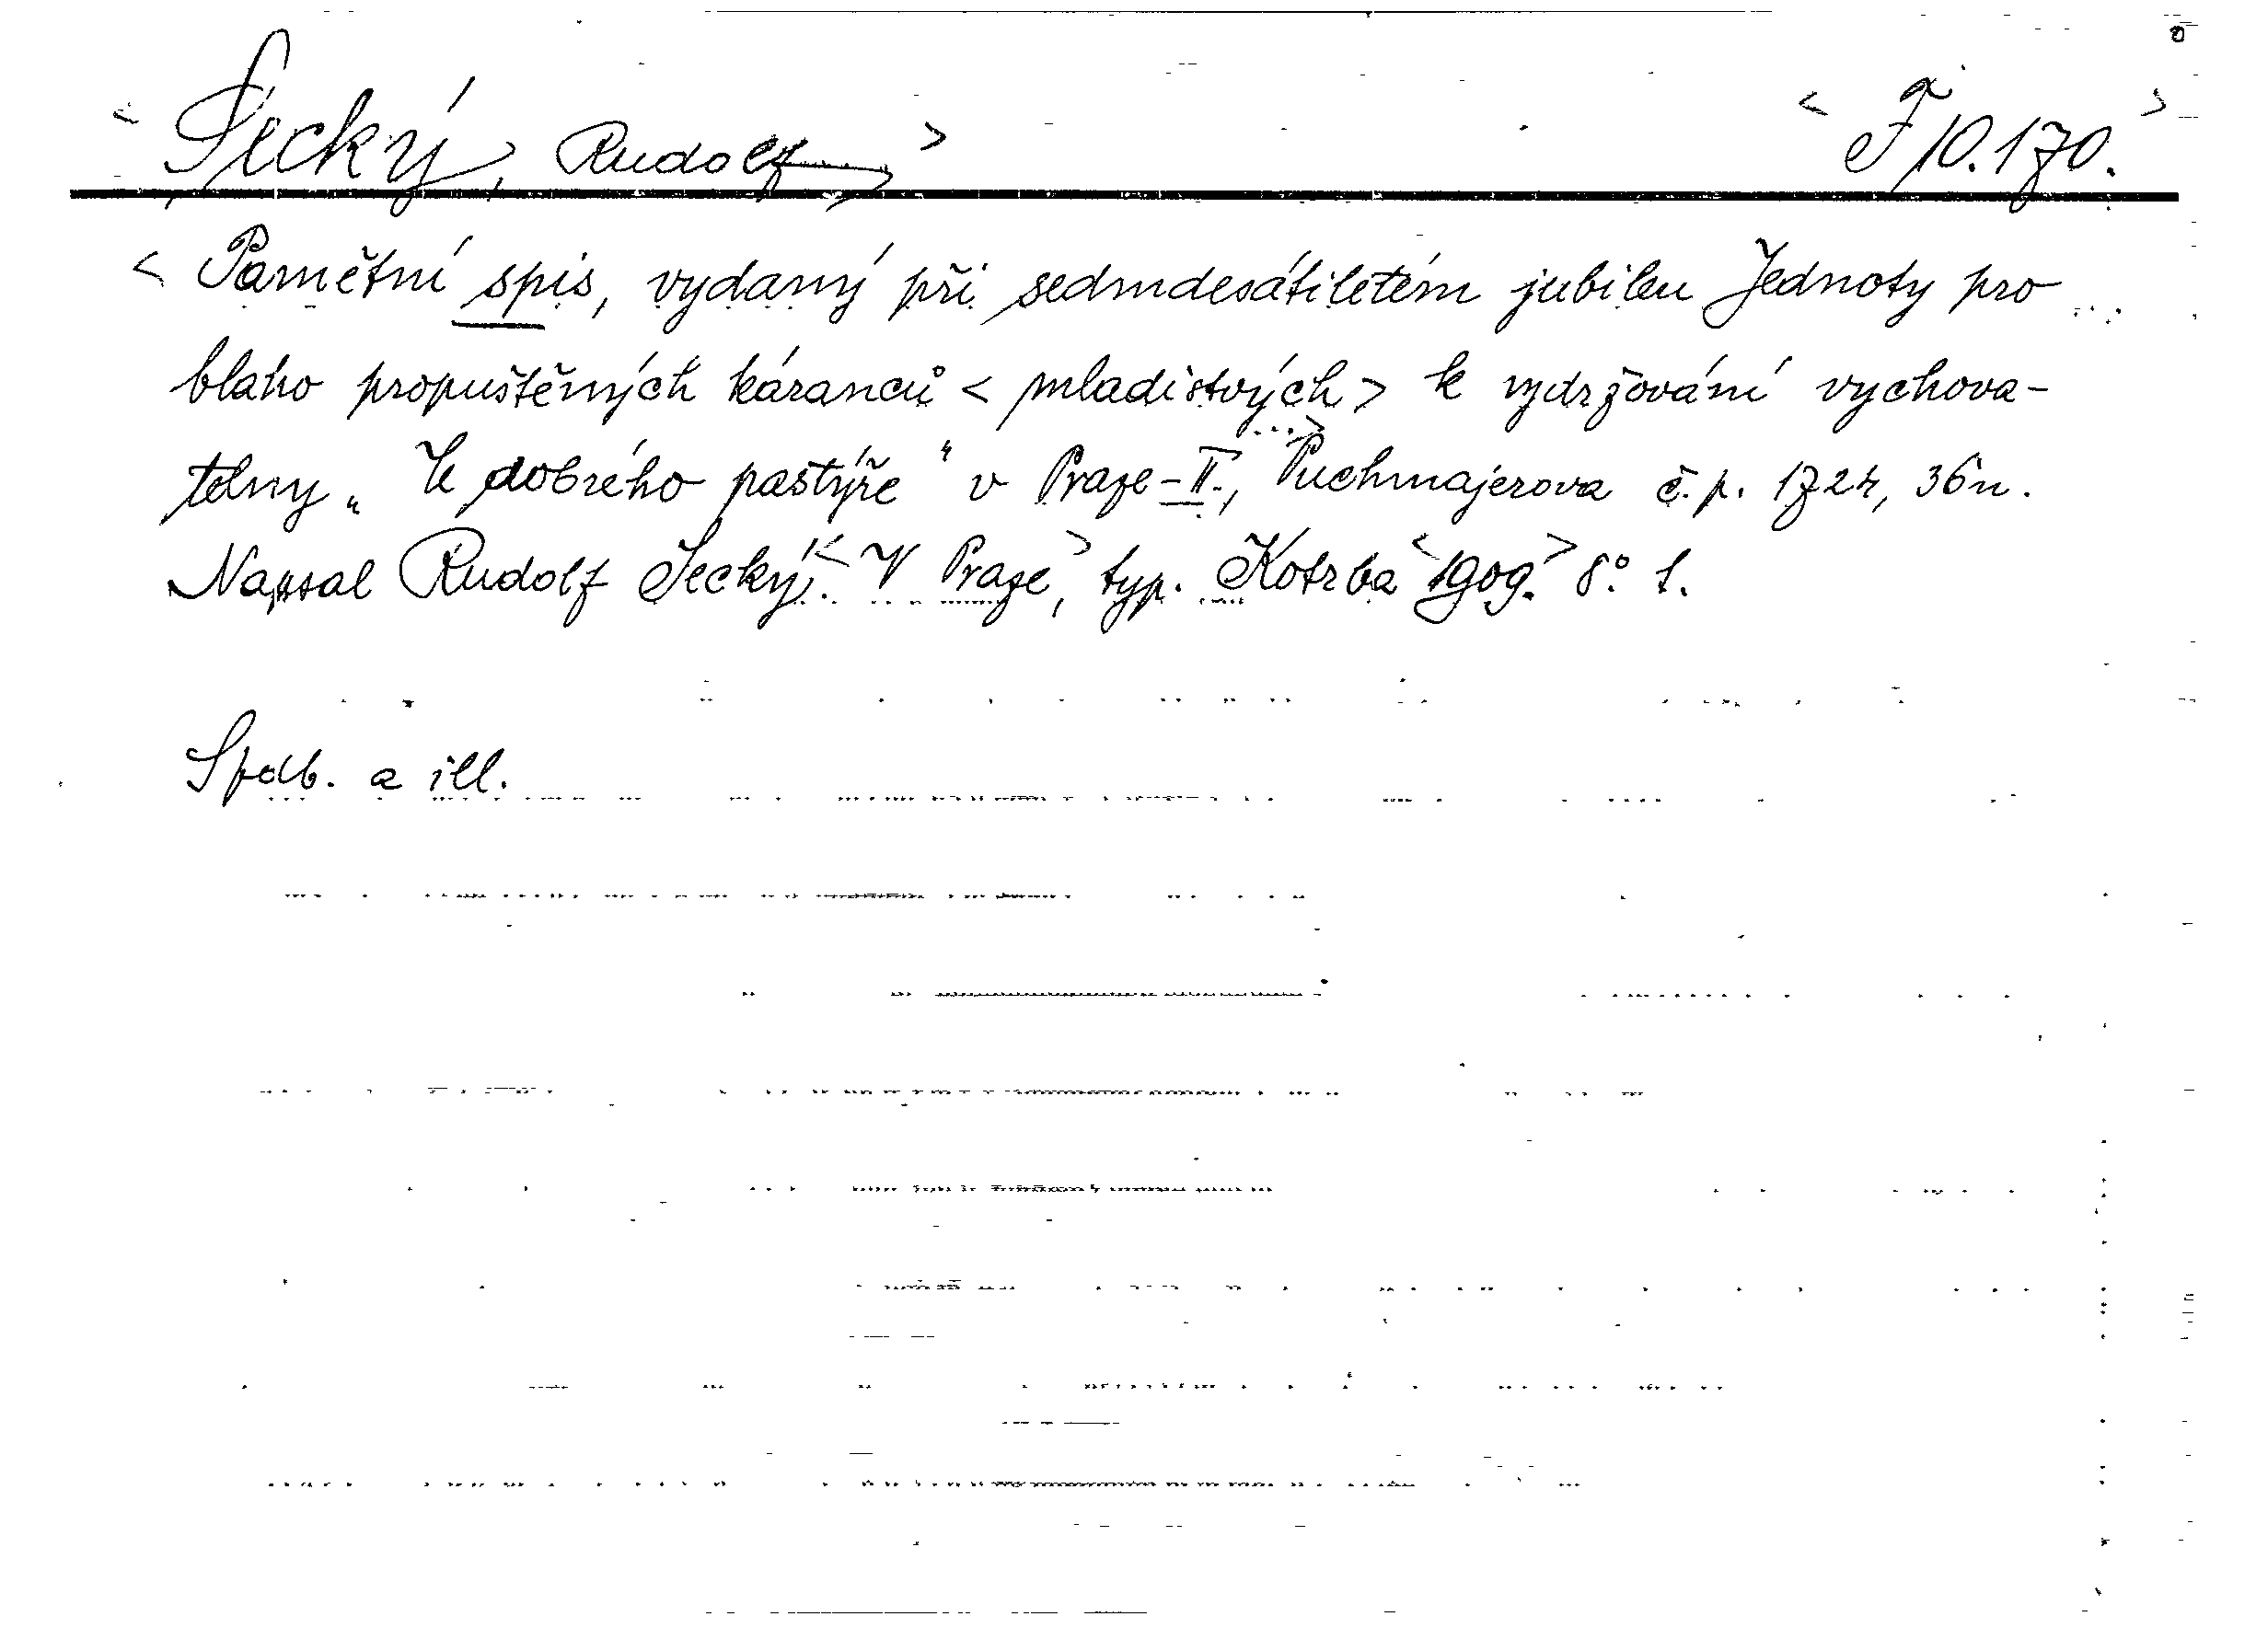 < Šecký, Rudolf > < F 10.170. >
< Pamětní spis, vydaný při sedmdesátiletém jubileu Jednoty pro
blaho propuštěných káranců < mladistvých > k vydržování vychova-
telny „U dobrého pastýře" v Praze-II., Puchmajerova č. p. 1724, 36n.
Napsal Rudolf Šecký. < V Praze, > typ. Kotrba < 1909. > 8° 1.
S podb. a ill.